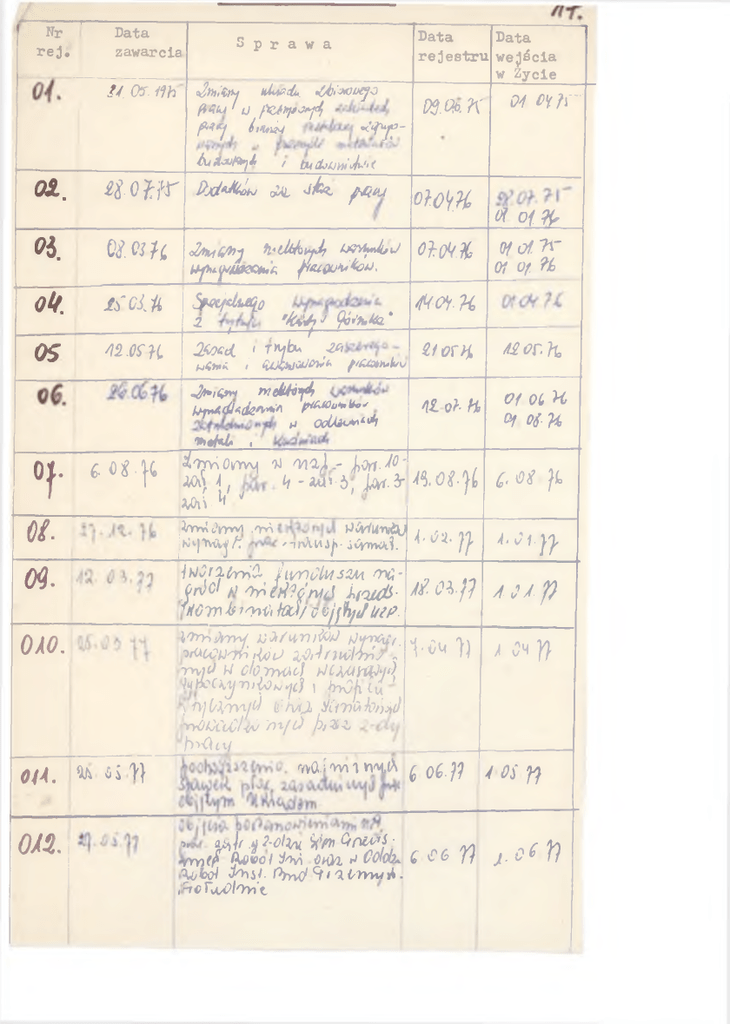 11.
Nr rej. Data zawarcia Sprawa Data rejestru Data wejścia w Życie
01. 31 05.1975 Zmiany układu zbiorowego 09.06.75 01.04 75
pracy w
pracy branży
budowlanych i budownictwie
02. 28.07.75 Dodatków za staż pracy 07.04.76 28.07.75
01 01 76
03. 08.03.76 Zmiany niektórych warunków 07.04.76 01 01.75
wynagrodzenia pracowników. 01 01.76
04. 25.03.76 Specjalnego wynagrodzenia 14.04.76 01.04.76
z tytułu "Karty Górnika"
05 12.05.76 Zasad i trybu zaszerego- 21 05 76 12.05.76
wania i awansowania pracowników
06. 26.06.76 Zmiany niektórych warunków 12.07.76 01.06 76
wynagradzania pracowników 01.08.76
zatrudnionych w odlewniach
metali i kuźniach
07. 6.08.76 Zmiany w par. 10- 19.08.76 6.08 76
zał 1, par. 4 - zał 3, par. 3-
zał 4
08. 27.12.76 zmiany niektórych warunków 1.02.77 1.01.77
wynagr. prac.-transp. samoch.
09. 12.03.77 tworzenia funduszu na- 18.03.77 1 01.77
gród w
/kombinatach/ objętych UZP.
010. 25.03 77 zmiany warunków wynagr. 7.04 77 1 04 77
pracowników zatrudnio-
nych w domach wczasowych
wypoczynkowych i profila-
ktycznych oraz sanatoriach
prowadzonych przez z-dy
pracy
011. 25.05.77 podwyższenia najniższych 6 06.77 1.05 77
stawek płac zasadniczych prac
objętym układem
012. 27.05.77 objęcia postanowieniami 6 06 77 1.06 77
Robót Inż. oraz w Oddz.
Robót Inst. Bud Przemysł.
Południe